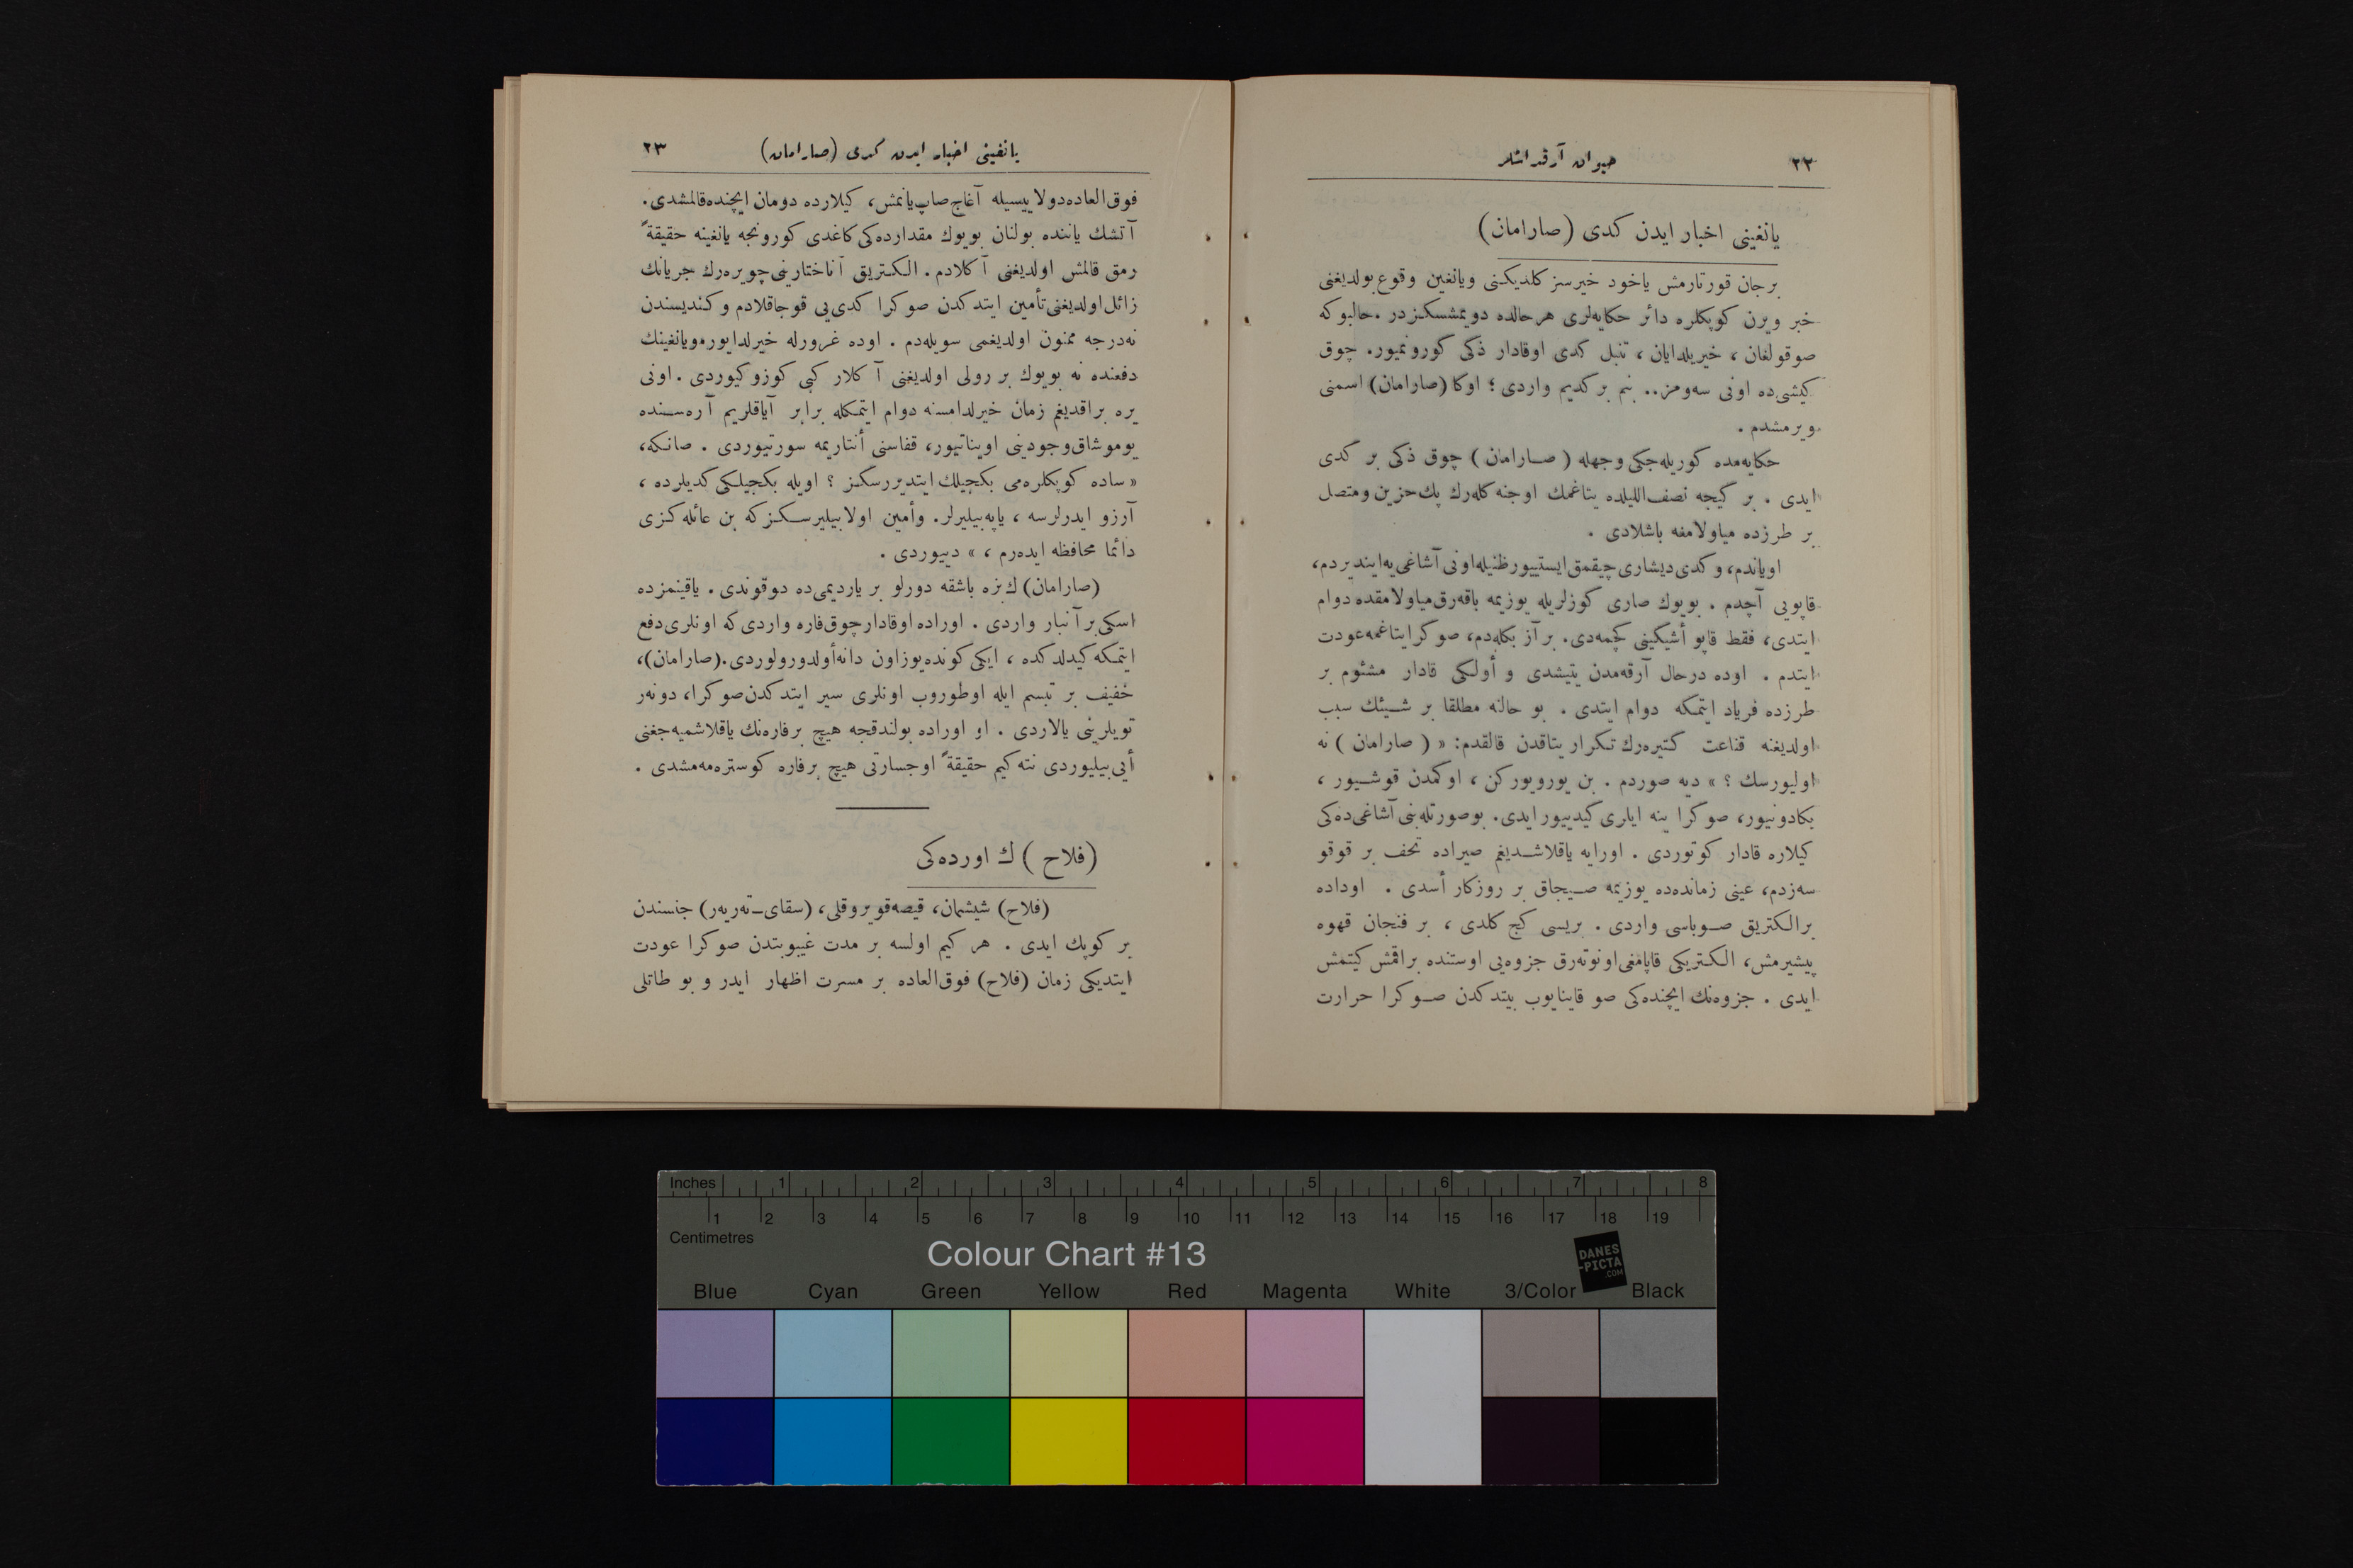 ٢٢
حیوان آرقداشلر
یانغینی اخبار ایدن كدی (صارامان)
برجان قورتارمش یاخود خیرسز كلدیكنی ویانغین وقوع بولدیغنی
خبر ویرن كوپكلره دائر حكایه‌لری هرحالده دویمشسكزدر . حالبوكه
صوقولغان ، خیریلدایان ، تنبل كدی اوقادار ذكی كورونمیور. چوق
كیشی‌ده اونی سه‌ومز.. بنم بر كدیم واردی ؛ اوكا (صارامان) اسمنی
ویرمشدم .
حكایه‌مده كوریله‌جكی وجهله ( صارامان ) چوق ذكی بر كدی
ایدی . بر كیجه نصف‌اللیلده یتاغمك اوجنه كله‌رك پك حزین ومتصل
بر طرزده میاولامغه باشلادی .
اویاندم، وكدی دیشاری چیقمق ایستییور ظنیله اونی آشاغی‌یه ایندیردم،
قاپویی آچدم . بویوك صاری كوزلریله یوزیمه باقه‌رق میاولامقده دوام
ایتدی، فقط قاپو أشیكینی كچمه‌دی. بر آز بكله‌دم، صوكرا یتاغمه عودت
ایتدم . اوده درحال آرقه‌مدن یتیشدی و أولكی قادار مشئوم بر
طرزده فریاد ایتمكه دوام ایتدی . بو حالنه مطلقا بر شیئك سبب
اولدیغنه قناعت كتیره‌رك تكرار یتاقدن قالقدم: « ( صارامان ) نه
اولیورسك ؟ » دیه صوردم . بن یورویوركن ، اوكمدن قوشیور ،
بكادونیور، صوكرا ینه ایلری كیدییور ایدی. بوصورتله بنی آشاغی‌ده‌كی
كیلاره قادار كوتوردی . اورایه یاقلاشدیغم صیراده تحف بر قوقو
سه‌زدم، عینی زمانده‌ده یوزیمه صیجاق بر روزكار أسدی . اوداده
برالكتریق صوباسی واردی . بریسی كچ كلدی ، بر فنجان قهوه
پیشیرمش، الكتریكی قاپامغی اونوته‌رق جزوه‌یی اوستنده براقمش كیتمش
ایدی . جزوه‌نك ایچنده‌كی صو قاینایوب بیتدكدن صوكرا حرارت
یانغینی اخبار ایدن كدی (صارامان)
٢٣
فوق‌العاده‌دولاییسیله آغاج صاپ یانمش، كیلارده دومان ایچنده‌قالمشدی.
آتشك یاننده بولنان بویوك مقدارده‌كی كاغدی كورونجه یانغینه حقیقةً
رمق قالمش اولدیغنی آكلادم . الكتریق آناختارینی چویره‌رك جریانك
زائل اولدیغنی تأمین ایتدكدن صوكرا كدی‌یی قوجاقلادم و كندیسندن
نه‌درجه ممنون اولدیغمی سویله‌دم . اوده غرورله خیرلدایور، ویانغینك
دفعنده نه بویوك بر رولی اولدیغنی آكلار كبی كوزوكیوردی . اونی
یره براقدیغم زمان خیرلدامسنه دوام ایتمكله برابر آیاقلریم آره‌سنده
یوموشاق وجودینی اویناتیور، قفاسنی أنتاریمه سورتیوردی . صانكه،
« ساده كوپكلره‌می بكجیلك ایتدیررسكز ؟ اویله بكجیلكی كدیلرده ،
آرزو ایدرلرسه ، یاپه‌بیلیرلر. وأمین اولابیلیرسكزكه بن عائله‌كزی
دائما محافظه ایده‌رم ، » دییوردی .
(صارامان) ك بزه باشقه دورلو بر یاردیمی‌ده دوقوندی . یاقینمزده
اسكی بر آنبار واردی . اوراده اوقادار چوق فاره واردی كه اونلری دفع
ایتمكه كیدلدكده ، ایكی كونده یوز اون دانه أولدورولوردی.(صارامان)،
خفیف بر تبسم ایله اوطوروب اونلری سیر ایتدكدن صوكرا، دونه‌ر
تویلرینی یالاردی . او اوراده بولندقجه هیچ برفاره‌نك یاقلاشمیه‌جغنی
أیی بیلیوردی نته كیم حقیقةً اوجسارتی هیچ برفاره كوستره‌مه‌مشدی .
(فلاح ) ك اورده‌كی
(فلاح) شیشمان، قیصه‌قویروقلی، (سقای_ته‌ریه‌ر) جنسندن
بر كوپك ایدی . هر كیم اولسه بر مدت غیبوبتدن صوكرا عودت
ایتدیكی زمان (فلاح) فوق‌العاده بر مسرت اظهار ایدر و بو طاتلی
Inches 1 2 3 4 5 6 7 8
1 2 3 4 5 6 7 8 9 10 11 12 13 14 15 16 17 18 19
Centimetres
Colour Chart #13
DANES
-PICTA
.COM
Blue Cyan Green Yellow Red Magenta White 3/Color Black